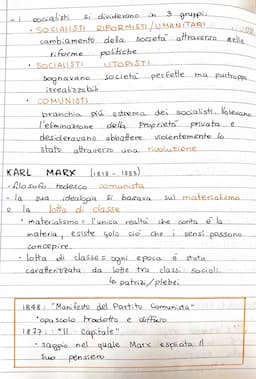 - i socialisti si dividevano in 3 gruppi:
• SOCIALISTI RIFORMISTI/UMANITARI
cambiamento della società attraverso delle
riforme politiche
• SOCIALISTI UTOPISTI
sognavano società perfette ma purtroppo
irrealizzabili
• COMUNISTI
branchia più estrema dei socialisti. Volevano
l'eliminazione della proprietà privata e
desideravano abbattere violentemente lo
stato attraverso una rivoluzione
KARL MARX (1818 - 1883)
- filosofo tedesco comunista
- la sua ideologia si basava sul materialismo
e la lotta di classe
• materialismo = l'unica realtà che conta è la
materia, esiste solo ciò che i sensi possono
concepire.
• lotta di classe = ogni epoca è stata
caratterizzata da lotte tra classi sociali.
↳ patrizi/plebei
1848: "Manifesto del Partito Comunista"
opuscolo tradotto e diffuso
1877: "Il Capitale"
• saggio nel quale Marx esplicita il
suo pensiero